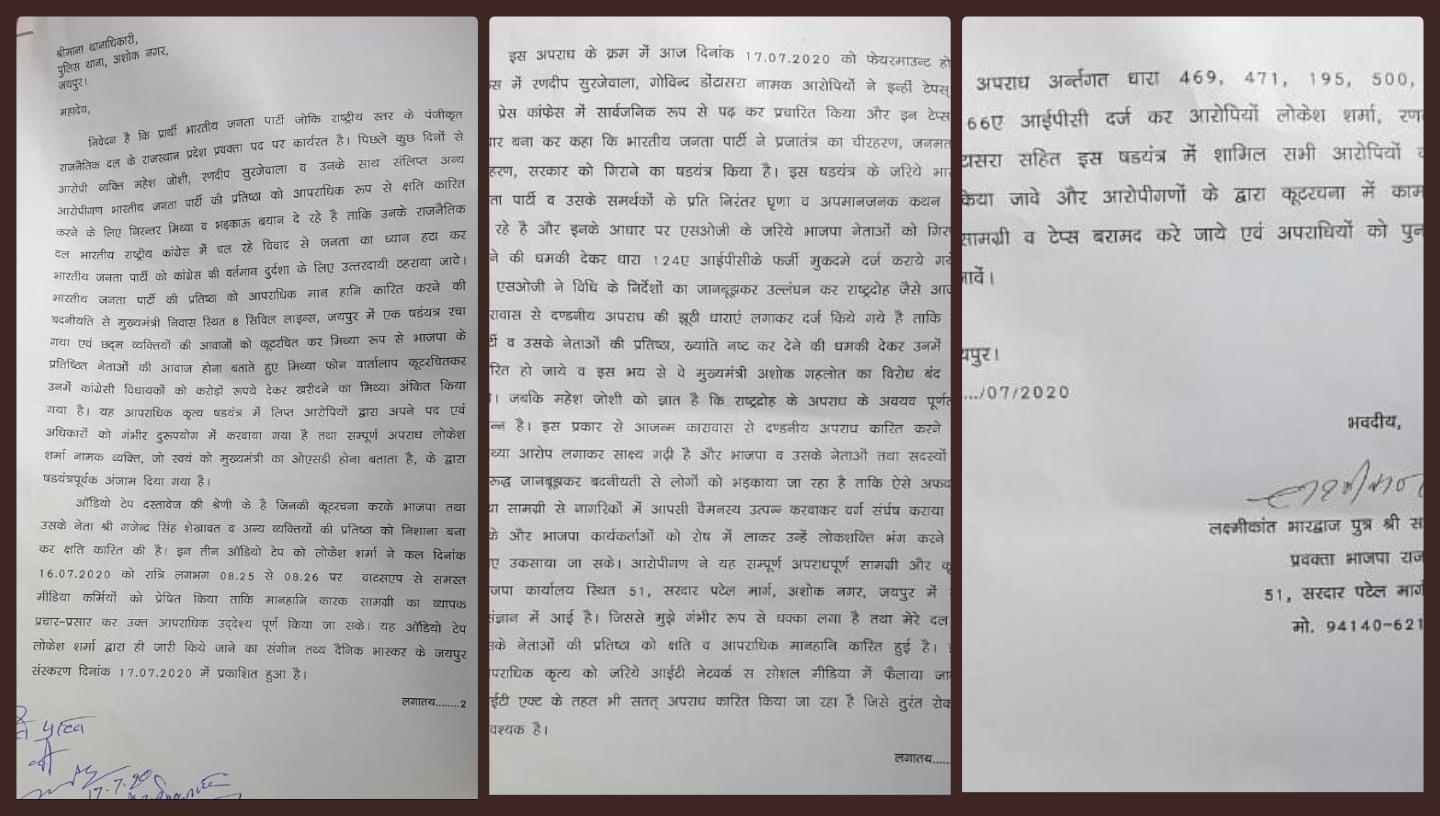 श्रीमान थानाधिकारी,
पुलिस थाना, अशोक नगर,
जयपुर।
महादेय,
निवेदन है कि प्रार्थी भारतीय जनता पार्टी जोकि राष्ट्रीय स्तर के पंजीकृत
राजनैतिक दल के राजस्थान प्रदेश प्रवक्ता पद पर कार्यरत है। पिछले कुछ दिनों से
आरोपी व्यक्ति महेश जोशी, रणदीप सुरजेवाला व उनके साथ संलिप्त अन्य
आरोपीगण भारतीय जनता पार्टी की प्रतिष्ठा को आपराधिक रूप से क्षति कारित
करने के लिए निरन्तर मिथ्या व भड़काऊ बयान दे रहे है ताकि उनके राजनैतिक
दल भारतीय राष्ट्रीय कांग्रेस में चल रहे विवाद से जनता का ध्यान हटा कर
भारतीय जनता पार्टी को कांग्रेस की वर्तमान दुर्दशा के लिए उत्तरदायी ठहराया जावे।
भारतीय जनता पार्टी की प्रतिष्ठा को आपराधिक मान हानि कारित करने की
बदनीयति से मुख्यमंत्री निवास स्थित 8 सिविल लाइन्स, जयपुर में एक षडंयत्र रचा
गया एवं छद्म व्यक्तियों की आवाजों को कूटरचित कर मिथ्या रूप से भाजपा के
प्रतिष्ठित नेताओं की आवाज होना बताते हुए मिथ्या फोन वार्तालाप कूटरचितकर
उनमें कांग्रेसी विधायकों को करोड़ों रूपये देकर खरीदने का मिथ्या अंकित किया
गया है। यह आपराधिक कृत्य षडयंत्र में लिप्त आरोपियों द्वारा अपने पद एवं
अधिकारों को गंभीर दुरूपयोग में करवाया गया है तथा सम्पूर्ण अपराध लोकेश
शर्मा नामक व्यक्ति, जो स्वयं को मुख्यमंत्री का ओएसडी होना बताता है, के द्वारा
षडयंत्रपूर्वक अंजाम दिया गया है।
ऑडियो टेप दस्तावेज की श्रेणी के है जिनकी कूटरचना करके भाजपा तथा
उसके नेता श्री गजेन्द्र सिंह शेखावत व अन्य व्यक्तियों की प्रतिष्ठा को निशाना बना
कर क्षति कारित की है। इन तीन ऑडियो टेप को लोकेश शर्मा ने कल दिनांक
16.07.2020 को रात्रि लगभग 08.25 से 08.26 पर वाटसएप से समस्त
मीडिया कर्मियों को प्रेषित किया ताकि मानहानि कारक सामग्री का व्यापक
प्रचार-प्रसार कर उक्त आपराधिक उद्देश्य पूर्ण किया जा सके। यह ऑडियो टेप
लोकेश शर्मा द्वारा ही जारी किये जाने का संगीन तथ्य दैनिक भास्कर के जयपुर
संस्करण दिनांक 17.07.2020 में प्रकाशित हुआ है।
लगातय........2
17.7.20
इस अपराध के क्रम में आज दिनांक 17.07.2020 को फेयरमाउन्ट हो
स में रणदीप सुरजेवाला, गोविन्द डोंटासरा नामक आरोपियों ने इन्हीं टेपस्
प्रेस कांफ्रेस में सार्वजनिक रूप से पढ़ कर प्रचारित किया और इन टेप्स
ार बना कर कहा कि भारतीय जनता पार्टी ने प्रजातंत्र का चीरहरण, जनमत
हरण, सरकार को गिराने का षडयंत्र किया है। इस षडयंत्र के जरिये भार
ता पार्टी व उसके समर्थकों के प्रति निरंतर घृणा व अपमानजनक कथन
रहे है और इनके आधार पर एसओजी के जरिये भाजपा नेताओं को गिर
ने की धमकी देकर धारा 124ए आईपीसीके फर्जी मुकदमे दर्ज कराये गये
एसओजी ने विधि के निर्देशों का जानबूझकर उल्लंघन कर राष्ट्रदोह जैसे आज
रावास से दण्डनीय अपराध की झूठी धाराएं लगाकर दर्ज किये गये है ताकि
र्टी व उसके नेताओं की प्रतिष्ठा, ख्याति नष्ट कर देने की धमकी देकर उनमें
रित हो जाये व इस भय से वे मुख्यमंत्री अशोक गहलोत का विरोध बंद
। जबकि महेश जोशी को ज्ञात है कि राष्ट्रदोह के अपराध के अवयव पूर्णत
न्न है। इस प्रकार से आजन्म कारावास से दण्डनीय अपराध कारित करने
थ्या आरोप लगाकर साक्ष्य गढ़ी है और भाजपा व उसके नेताओं तथा सदस्यों
रूद्ध जानबूझकर बदनीयती से लोगों को भड़काया जा रहा है ताकि ऐसे अफव
ा सामग्री से नागरिकों में आपसी वैमनस्य उत्पन्न करवाकर वर्ग संर्घष कराया
के और भाजपा कार्यकर्ताओं को रोष में लाकर उन्हें लोकशक्ति भंग करने
ए उकसाया जा सके। आरोपीगण ने यह सम्पूर्ण अपराधपूर्ण सामग्री और कू
जपा कार्यालय स्थित 51, सरदार पटेल मार्ग, अशोक नगर, जयपुर में
संज्ञान में आई है। जिससे मुझे गंभीर रूप से धक्का लगा है तथा मेरे दल
सके नेताओं की प्रतिष्ठा को क्षति व आपराधिक मानहानि कारित हुई है।
पराधिक कृत्य को जरिये आईटी नेटवर्क स सोशल मीडिया में फैलाया जा
ईटी एक्ट के तहत भी सतत् अपराध कारित किया जा रहा है जिसे तुरंत रोक
वश्यक है।
लगातय......
अपराध अर्न्तगत धारा 469, 471, 195, 500,
66ए आईपीसी दर्ज कर आरोपियों लोकेश शर्मा, रण
टासरा सहित इस षडयंत्र में शामिल सभी आरोपियों
किया जावे और आरोपीगणों के द्वारा कूटरचना में काम
सामग्री व टेप्स बरामद करे जाये एवं अपराधियों को पुन
जावें।
यपुर।
.../07/2020
भवदीय,
लक्ष्मीकांत भारद्वाज पुत्र श्री स
प्रवक्ता भाजपा राज
51, सरदार पटेल मार्ग
मो. 94140-621